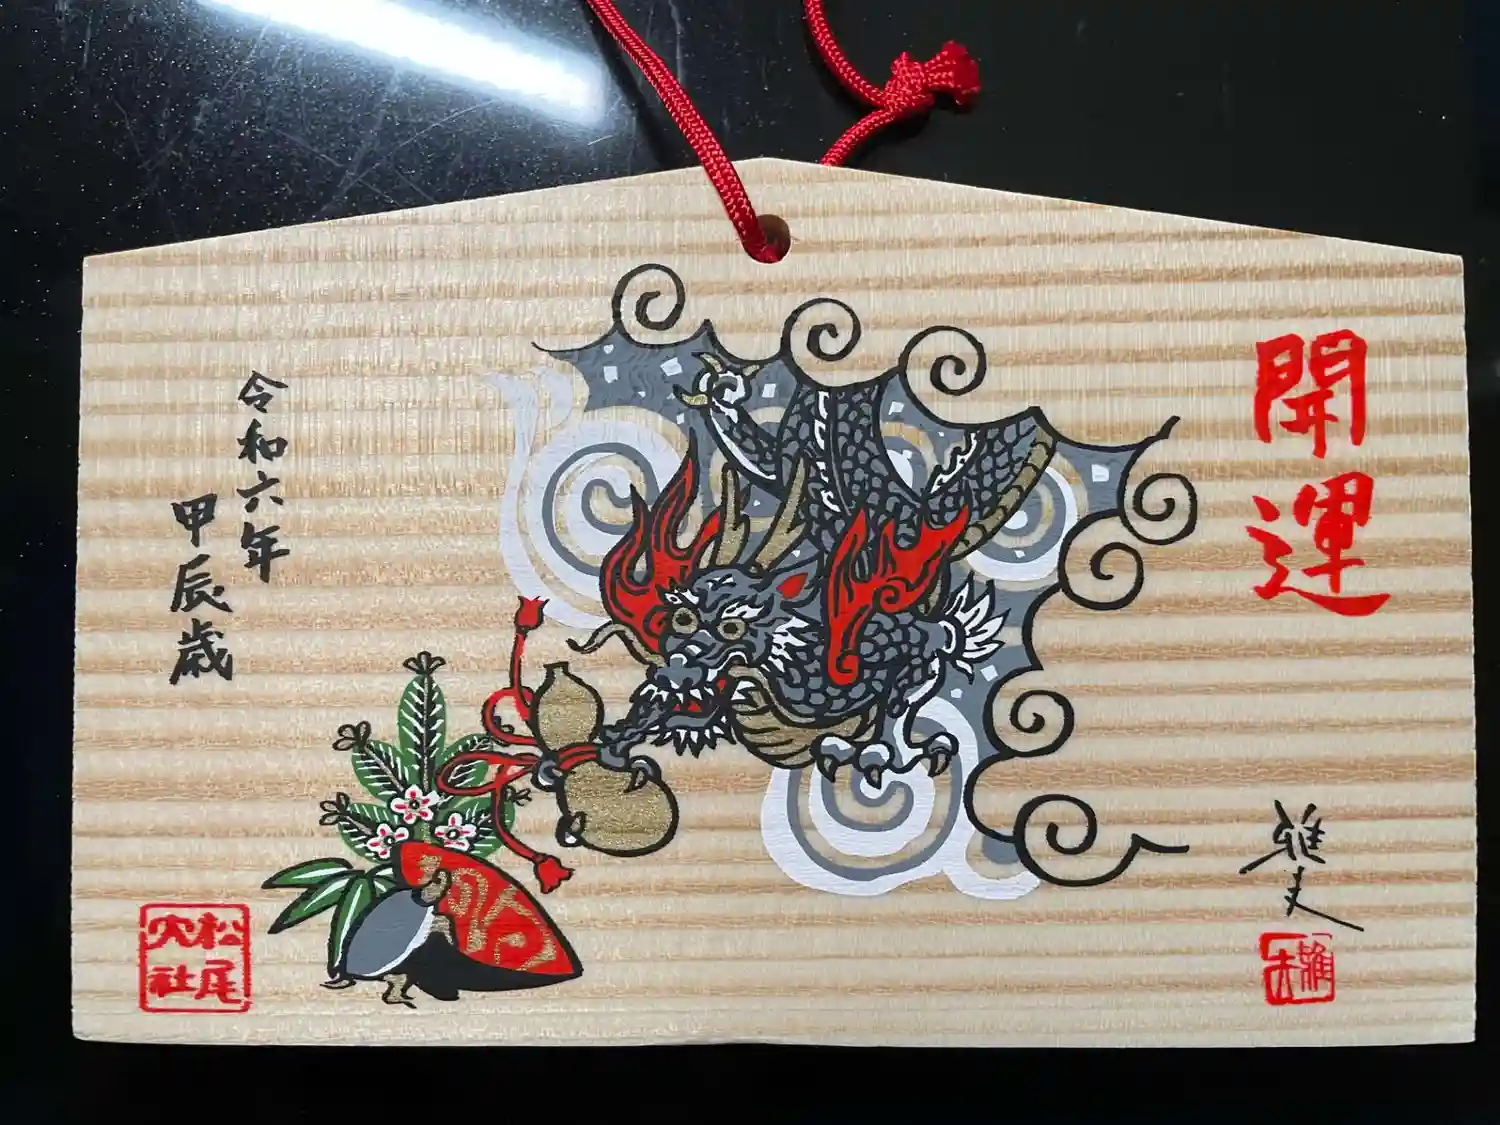 開運
令和六年
甲辰歳
雅夫
松尾
大社